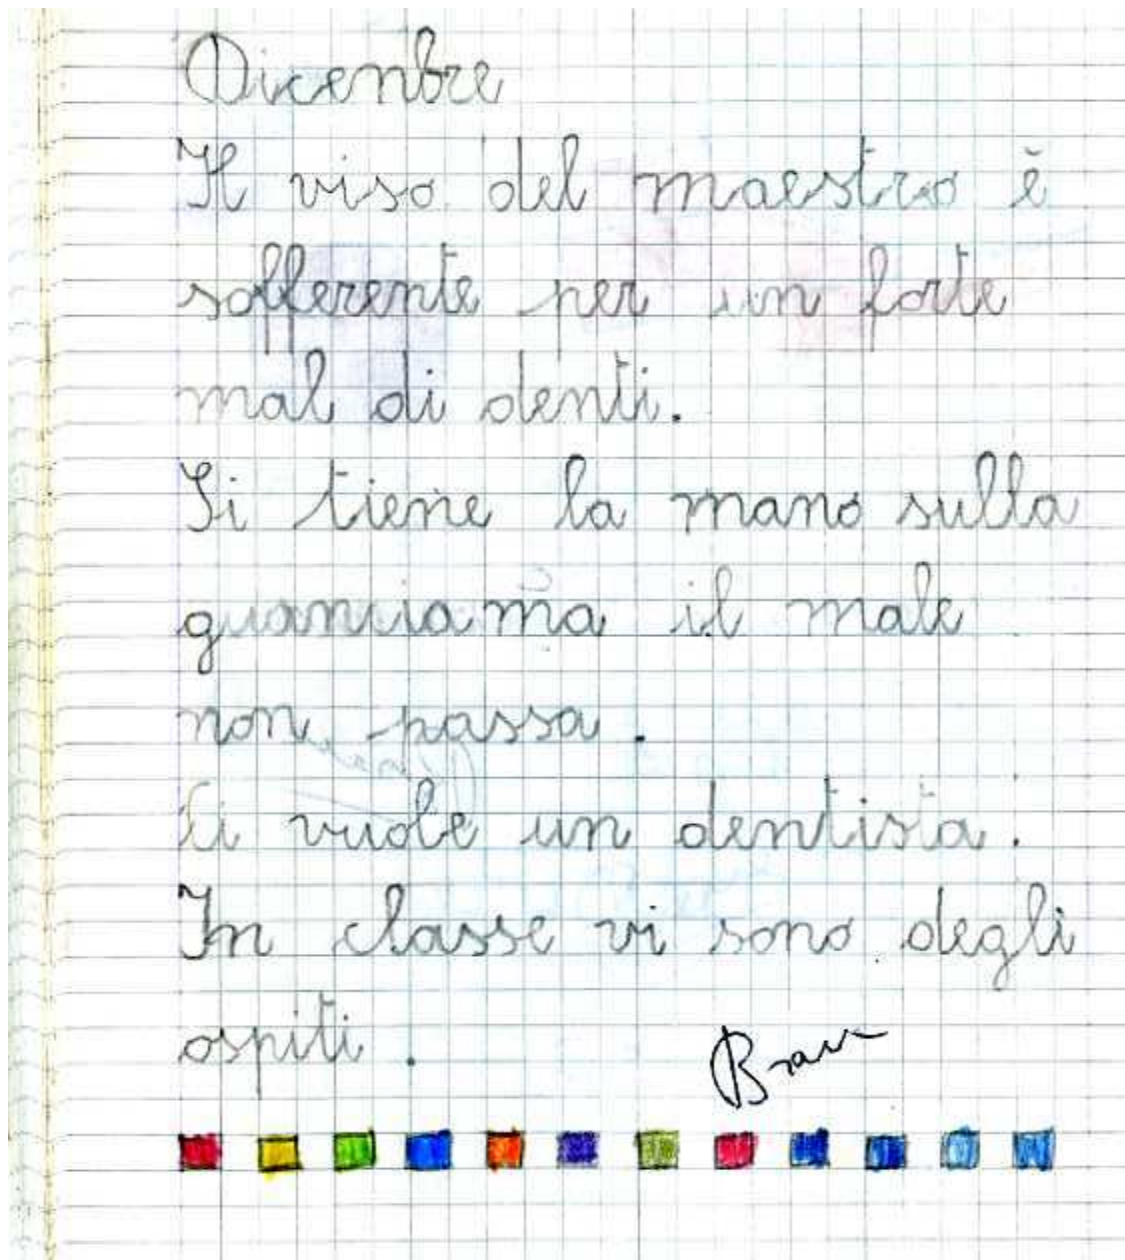 Dicenbre
Il viso del maestro è
sofferente per un forte
mal di denti.
Si tiene la mano sulla
guancia ma il male
non passa.
Ci vuole un dentista.
In classe vi sono degli
ospiti.